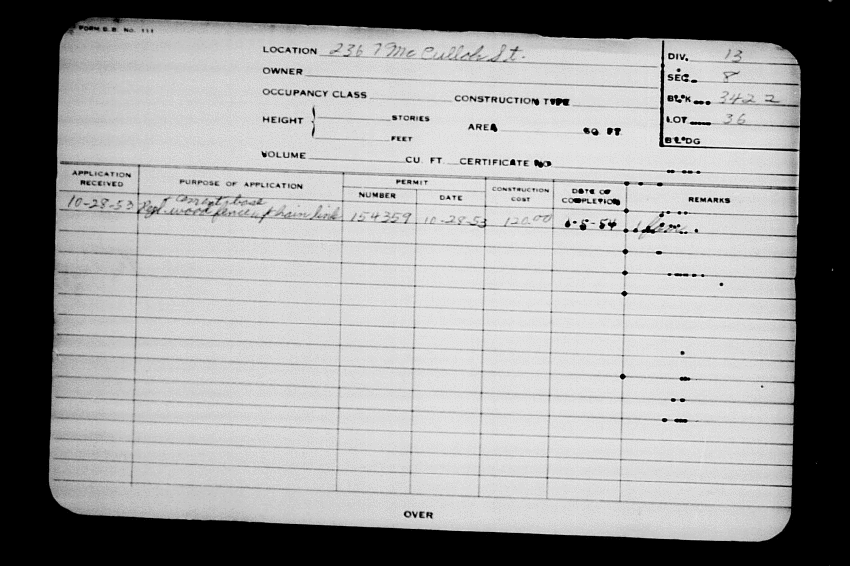 FORM B.E. No. 111
LOCATION 2367 McCulloh St.
OWNER
OCCUPANCY CLASS CONSTRUCTION TYPE
HEIGHT STORIES
FEET
AREA SQ FT.
VOLUME CU. FT. CERTIFICATE NO
DIV. 13
SEC. 8
BLOK 3422
LOT 36
BLDG
APPLICATION RECEIVED PURPOSE OF APPLICATION PERMIT CONSTRUCTION COST DATE OF COMPLETION REMARKS
NUMBER DATE
10-28-53 wood fence chain link 154359 10-28-53 120.00 1-5-54
OVER